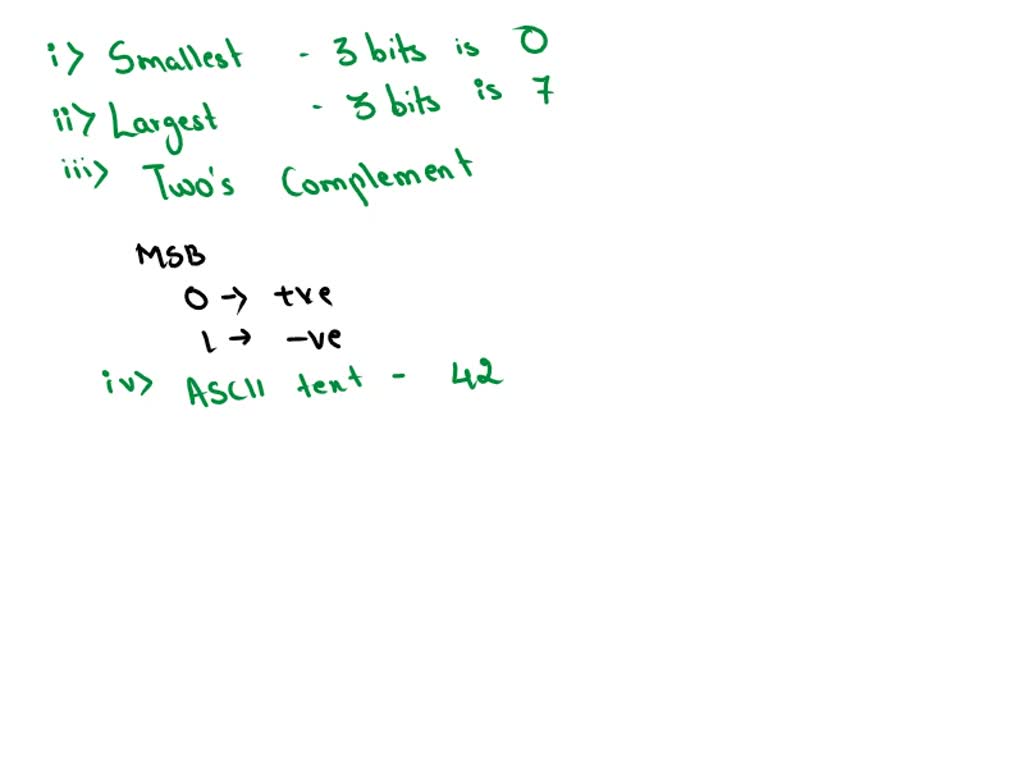 i> Smallest - 3 bits is 0
ii> Largest - 3 bits is 7
iii> Two's Complement
MSB
0 → +ve
1 → -ve
iv> ASCII text - 42